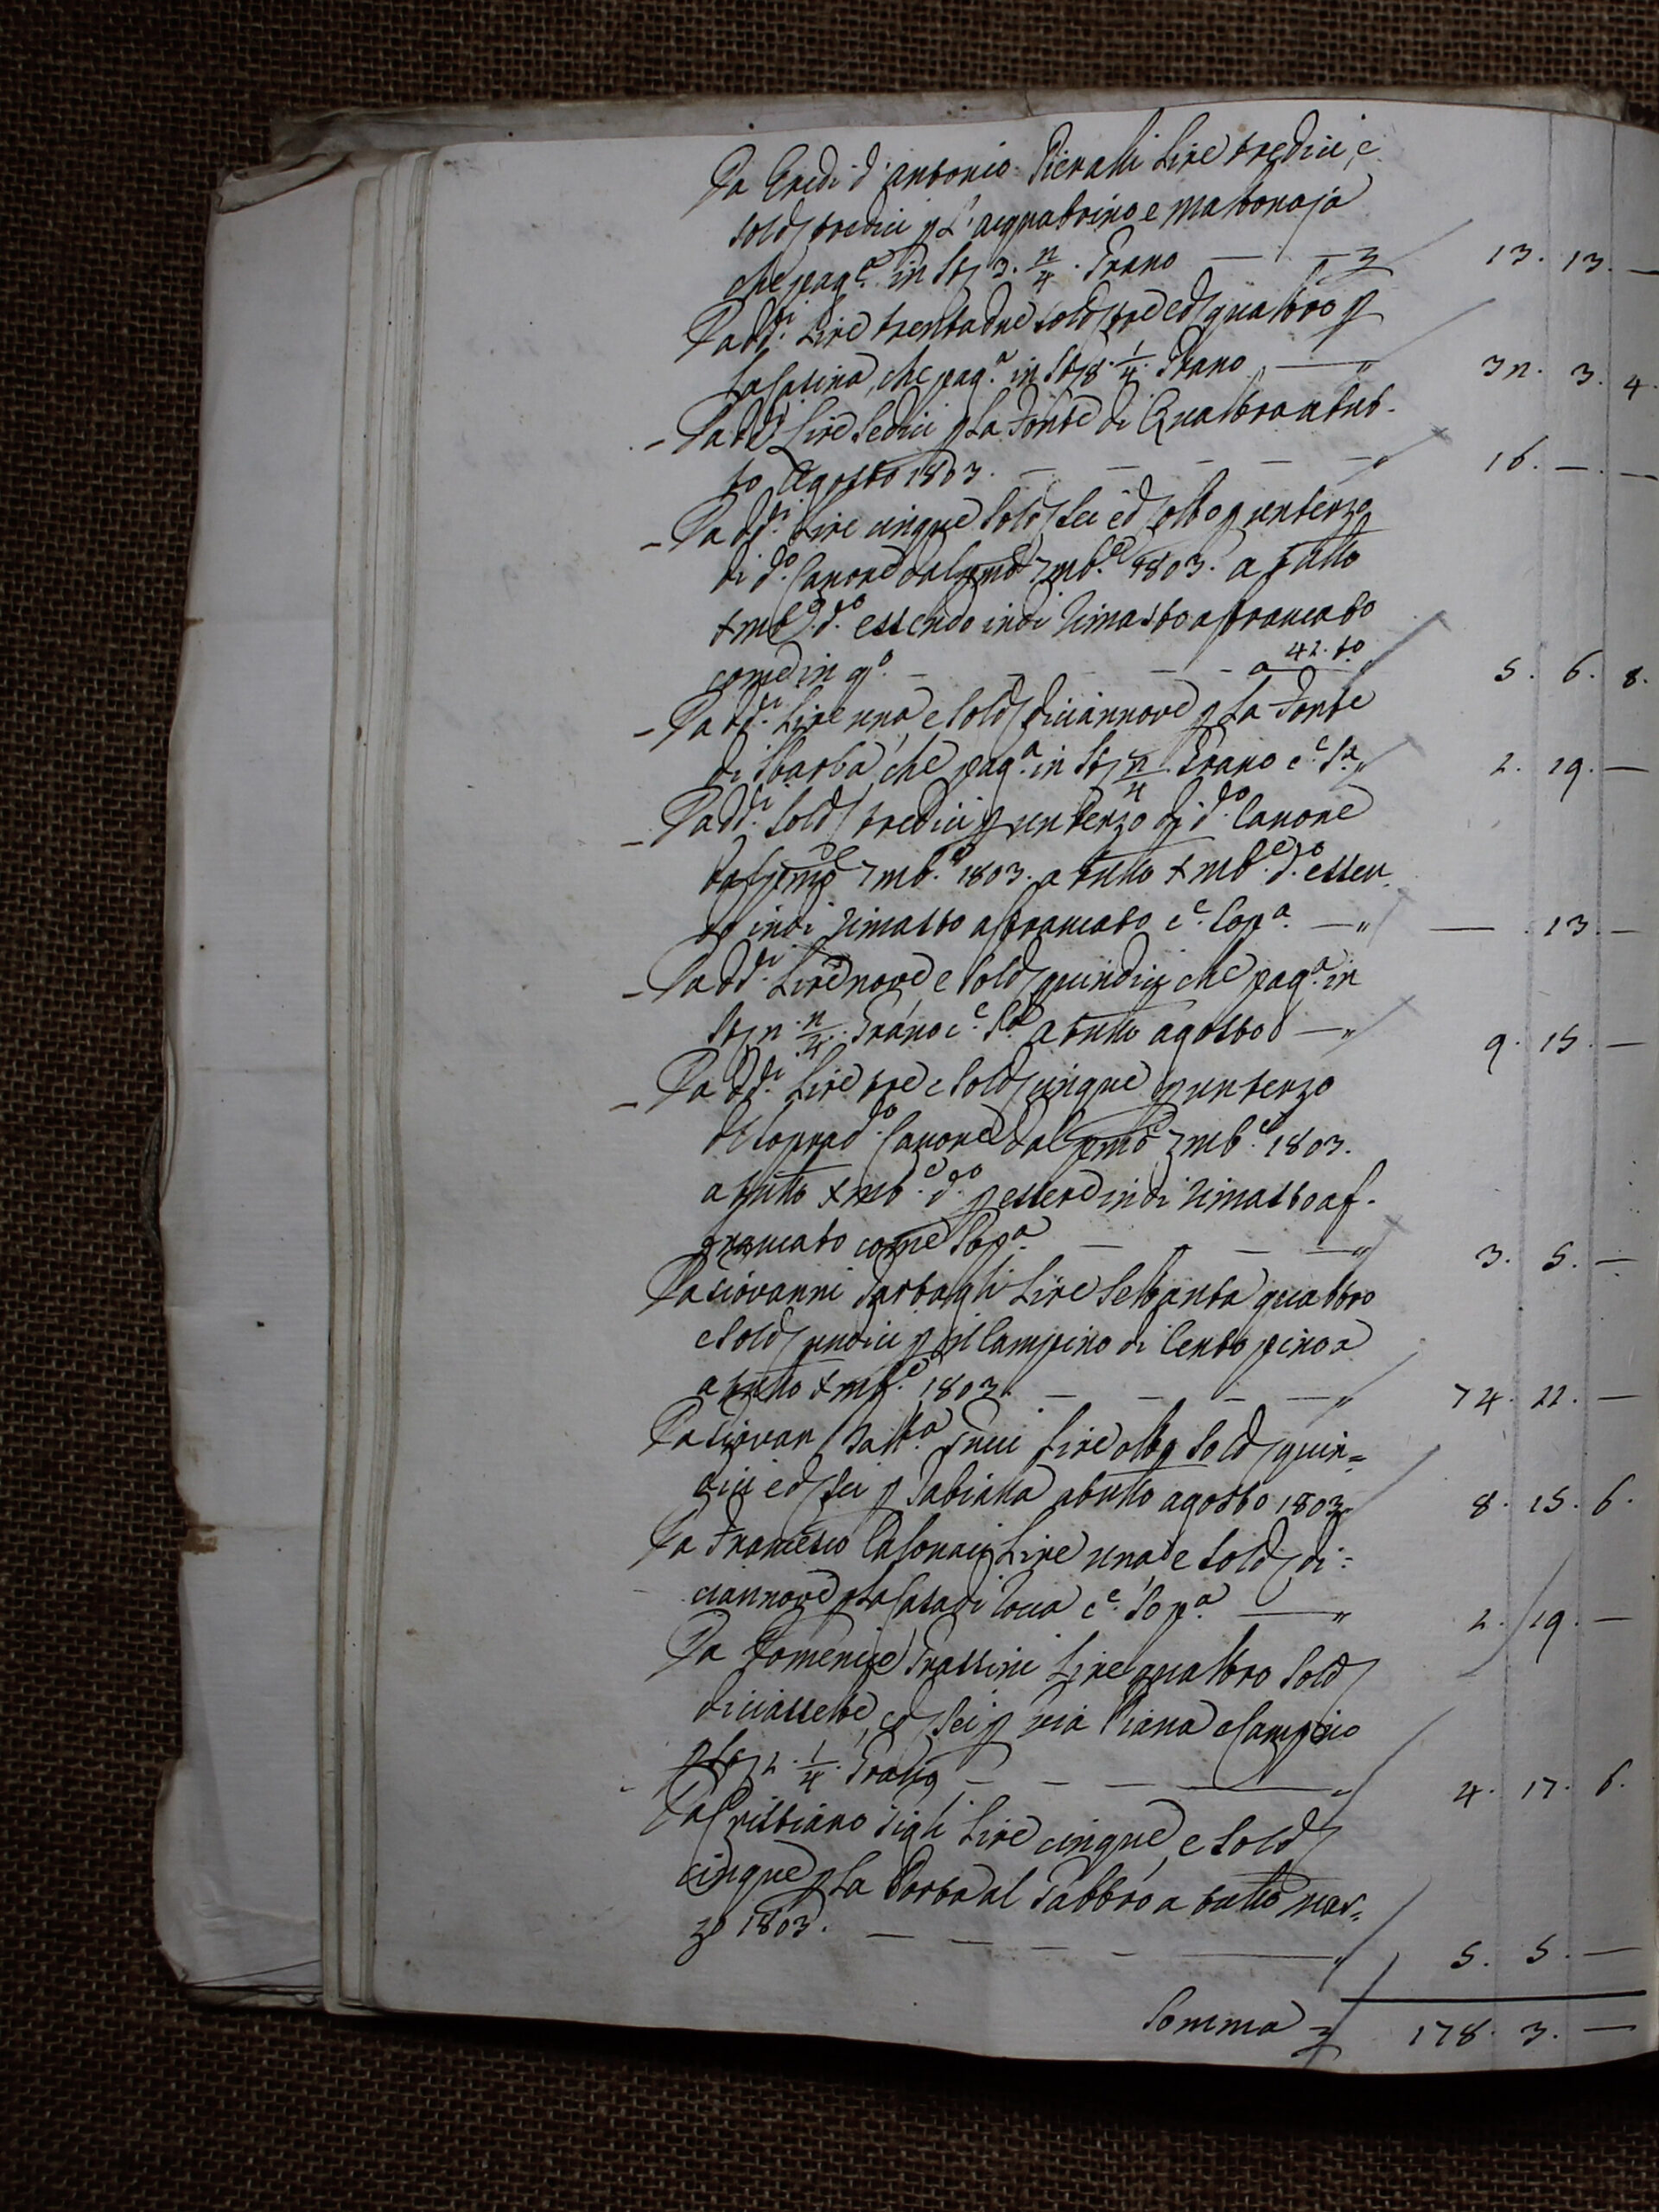 Da Eredi d'Antonio Pieralli Lire tredici, e
sold tredici p L'acquatrino e Mattonaja
che pag.e in St 3. 2/4. Grano — — 13. 13. —
Da dd.i Lire trentadue sold tre ed quattro p
La Casina, che pag.a in St 8. 1/4. Grano — 32. 3. 4.
– Da dd.i Lire Sedici p La Fonte di a tut-
to Agosto 1803. — — — — — 16. — . —
– Da dd.i Lire cinque Sold Sei ed otto p un terzo
di d.o Canone dal pmo 7mb.e 1803. a tutto
Xmb.e d.o essendo indi rimasto affrancato
come in q.o — — — a 42. t.o 5. 6. 8.
– Da dd.i Lire una, e Sold diciannove p La Fonte
di Sbarba, che pag.a in St 2/4 Grano c.e S.a 1. 19. —
– Da dd.i Sold tredici p un terzo di d.o Canone
dal pmo 7mb.e 1803. a tutto Xmb.e d.o essen
do indi rimasto affrancato c.e Sop.a — — . 13. —
– Da dd.i Lire nove e Sold quindici che pag.a in
St 2. 2/4. Grano c.e S.a a tutto agosto — 9. 15. —
– Da dd.i Lire tre e Sold cinque p un terzo
del soprad.o Canone dal pmo 7mb.e 1803.
a tutto Xmb.e d.o p essere indi rimasto af-
francato come Sop.a — — — — 3. 5. —
Da Giovanni Lire Settanta quattro
e Sold undici p il Campino di Cento pino a
a tutto Xmb.e 1803. — — — — 74. 11. —
Da Giovan Batt.a Lire otto Sold quin=
dici ed Sei p a tutto agosto 1803 8. 15. 6.
Da Francesco Lire una e Sold di=
ciannove p La Casa di c.e Sop.a — 1. 19. —
Da Domenico Grassini Lire quattro Sold
diciassette, ed Sei p via Piana e Campino
p St 1. 1/4. Grano — — — — 4. 17. 6.
Da Cristiano Lire cinque, e Sold
cinque p La Porta al Fabbro a tutto mar=
zo 1803. — — — — — 5. 5. —
Somma 178. 3. —